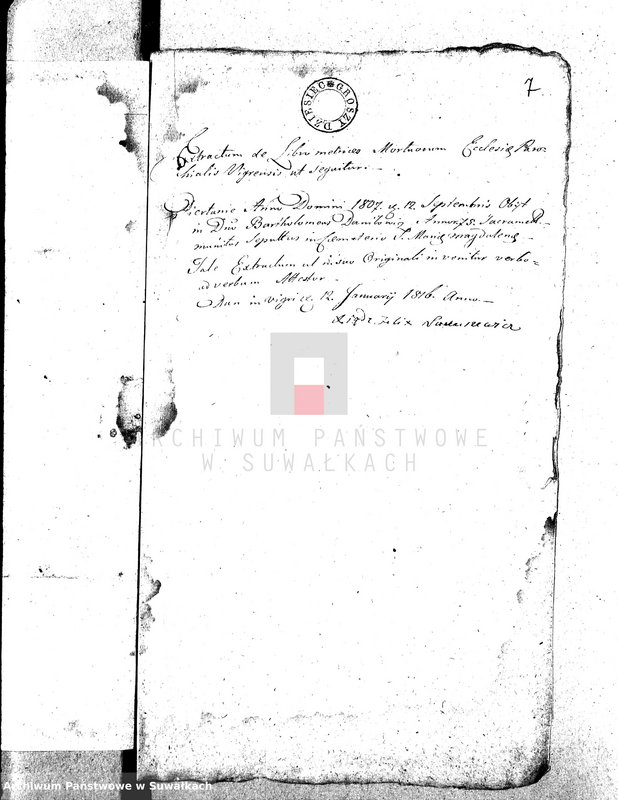 7
DZIESIĘC GROSZY
Extractum de Libro metrices Mortuorum Ecclesię Paro-
chialis Vigrensis ut sequitur.
Piertanie Anno Domini 1807. d. 12. Septembris Obijt
in Dno Bartholomeus Daniłowicz Annor. 75. Sacrament.
munitus Sepultus in Cæmeterio S. Marię Magdalenę
Tale Extractum ut in suo Originali in venitur verbo-
ad verbum Attestor
Dan in Vigri d. 12. Januarij 1816. Anno.
Felix
ARCHIWUM PAŃSTWOWE
W SUWAŁKACH
Archiwum Państwowe w Suwałkach